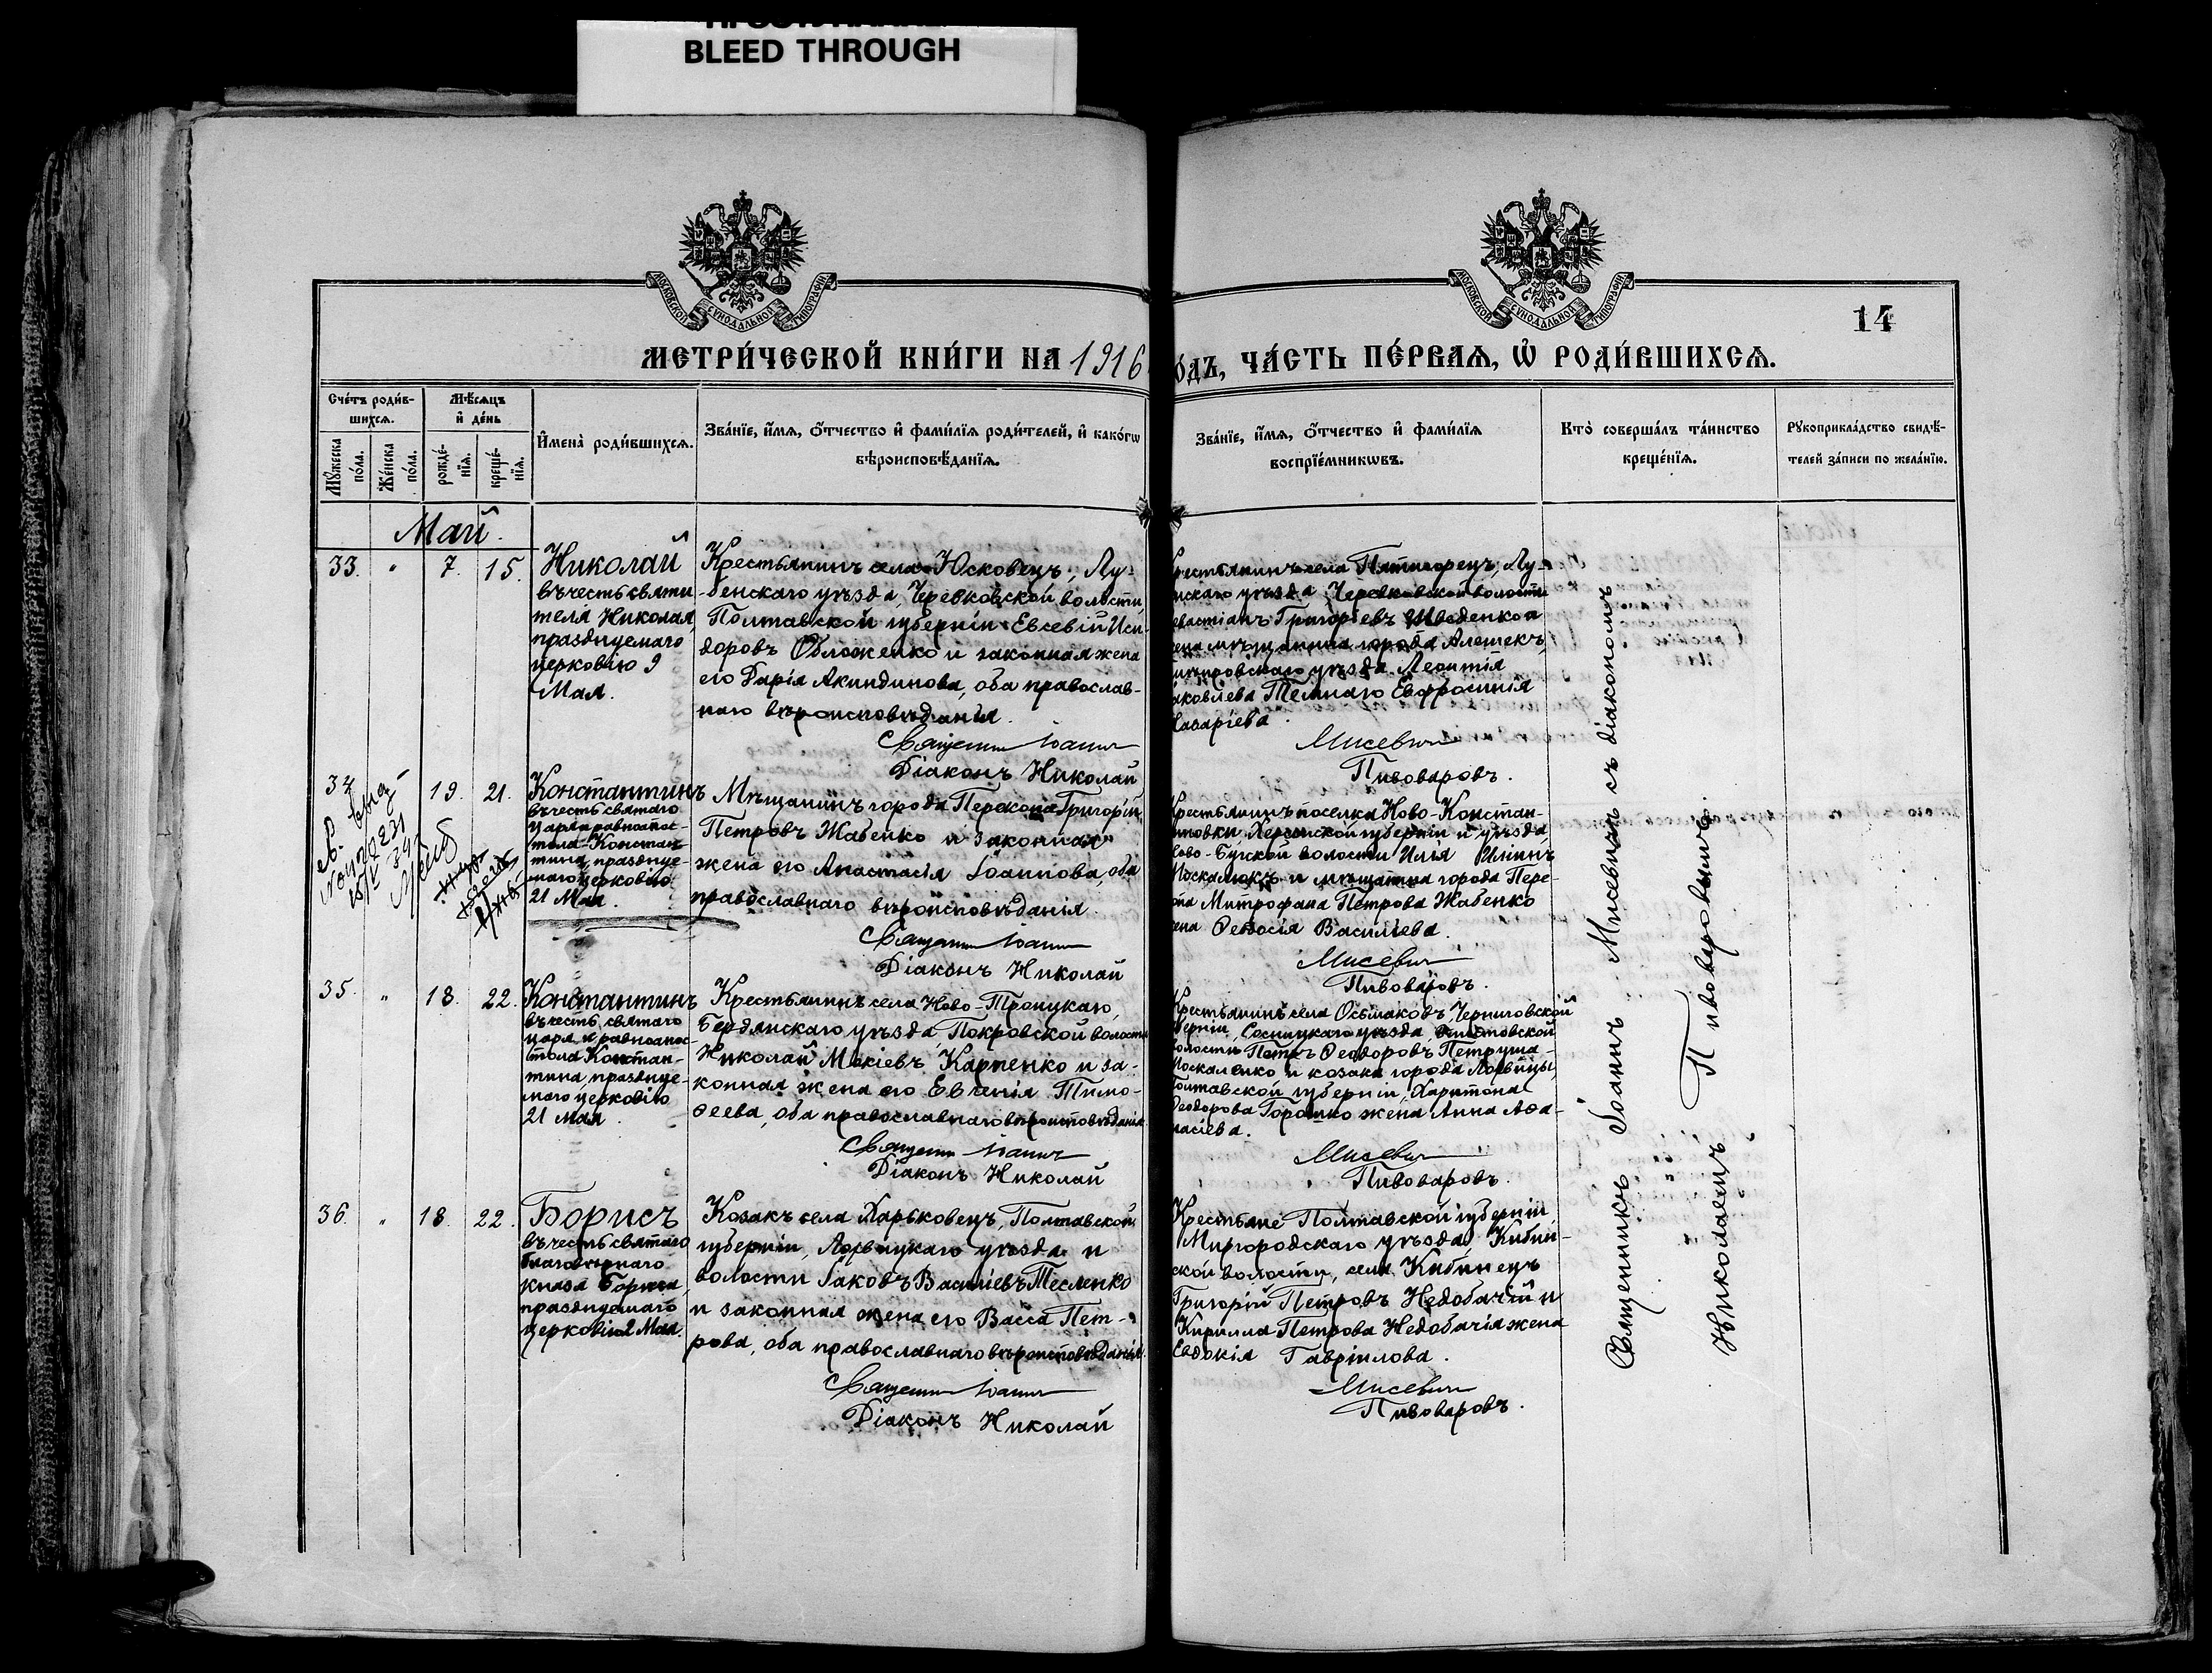 BLEED THROUGH
МОСКОВСКОЙ СѴНОДАЛЬНОЙ ТИПОГРАФІИ
МОСКОВСКОЙ СѴНОДАЛЬНОЙ ТИПОГРАФІИ
14
МЕТРИ́ЧЕСКОЙ КНИ́ГИ НА 1916
О́ДЪ, ЧА́СТЬ ПЕ́РВАѦ, Ѽ РОДИ́ВШИХСѦ.
Сче́тъ роди́в-
шихсѧ.
Мꙋжеска
по́ла.
Же́нска
по́ла.
Мѣ́сѧцъ
и҆ де́нь
рожде́-
нїѧ.
креще́-
нїѧ.
И҆мена̀ роди́вшихсѧ.
Зва́нїе, и҆́мѧ, ѻ҆́тчество и҆ фами́лїѧ роди́телей, и҆ како́гѡ
вѣроисповѣ́данїѧ.
Зва́нїе, и҆́мѧ, ѻ҆́тчество и҆ фами́лїѧ
воспрїе́мникѡвъ.
Кто̀ соверша́лъ та́инство
креще́нїѧ.
Рꙋкоприкла́дство свидѣ́-
телей за́писи по жела́нїю.
Май.
33. " 7. 15.
Николай
въ честь святи-
теля Николая,
празднуемаго
церковію 9
Мая.
Крестьянинъ села Юсковецъ, Лу-
бенскаго уѣзда, Черевковской волости,
Полтавской губерніи Евсевій Иси-
доровъ Обложенко и законная жена
его Дарія Акиндинова, оба православ-
наго вѣроисповѣданія.
Священник Іоанн
Діаконъ Николай
крестьянинъ села Пятигорецъ, Лу-
нскаго уѣзда Черевковской волости
евастіанъ Григоріевъ Шведенко и
ена мѣщанина города Алешекъ,
Днѣпровскаго уѣзда Леонтія
аковлева Темнаго Евфросинія
Назаріева.
Мисевич
Пивоваровъ.
34 19. 21.
Константинъ
въ честь святаго
Царя равноапос-
тола Констан-
тина, празднуе-
маго церковію
21 Мая.
Мѣщанинъ города Перекопа Григорій
Петровъ Жабенко и законная
жена его Анастасія Іоаннова, оба
православнаго вѣроисповѣданія.
Священник Іоанн
Діаконъ Николай
Крестьянинъ поселка Ново-Констан-
тиновки Херсонской губерніи и уѣзда
Ново-Бугской волости Илія Иліинъ
Москалюкъ и мѣщанина города Пере-
опа Митрофана Петрова Жабенко
ена Ѳеодосія Василіева.
Мисевич
Пивоваровъ.
35. " 18. 22.
Константинъ
въ честь святаго
царя и равноапос-
тола Констан-
тина, празднуе-
маго церковію
21 Мая.
Крестьянинъ села Ново-Троицкаго,
Бердянскаго уѣзда, Покровской волости
Николай Мокіевъ Карпенко и за-
конная жена его Евгенія Тимо-
ѳеева, оба православнаго вѣроисповѣданія.
Священник Іоанн
Діаконъ Николай
Крестьянинъ села Осьмаковъ, Черниговской
губерніи, Сосницкаго уѣзда,
волости Петръ Ѳеодоровъ Петруша-
Москаленко и козака города Лохвицы,
Полтавской губерніи, Харитона
Ѳеодорова Горошко жена Анна Аѳа-
насіева.
Мисевич
Пивоваровъ.
36. " 18. 22.
Борисъ
въ честь святаго
благовѣрнаго
князя Бориса,
празднуемаго
церковію 2 Мая.
Козакъ села Харьковецъ, Полтавской
губерніи, Лохвицкаго уѣзда и
волости Іаковъ Василіевъ Тесленко
и законная жена его Васса Пет-
рова, оба православнаго вѣроисповѣданія.
Священник Іоанн
Діаконъ Николай
Крестьяне Полтавской губерніи
Миргородскаго уѣзда, Кибин-
ской волости, села Кибинецъ
Григорій Петровъ Недобачій и
Кирилла Петрова Недобачія жена
Евдокія Гавріилова.
Мисевич
Пивоваровъ.
Священникъ Іоаннъ Мисевичъ съ діакономъ
Николаемъ Пивоваровымъ.